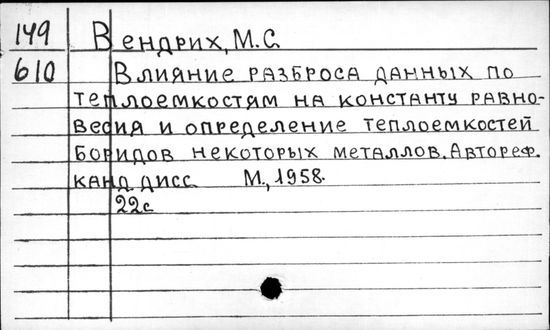 149 Вендрих, М.С.
610 Влияние разброса данных по
теплоемкостям на константу равно-
весия и определение теплоемкостей
боридов некоторых металлов. Автореф.
канд. дисс. М., 1958.
22с.